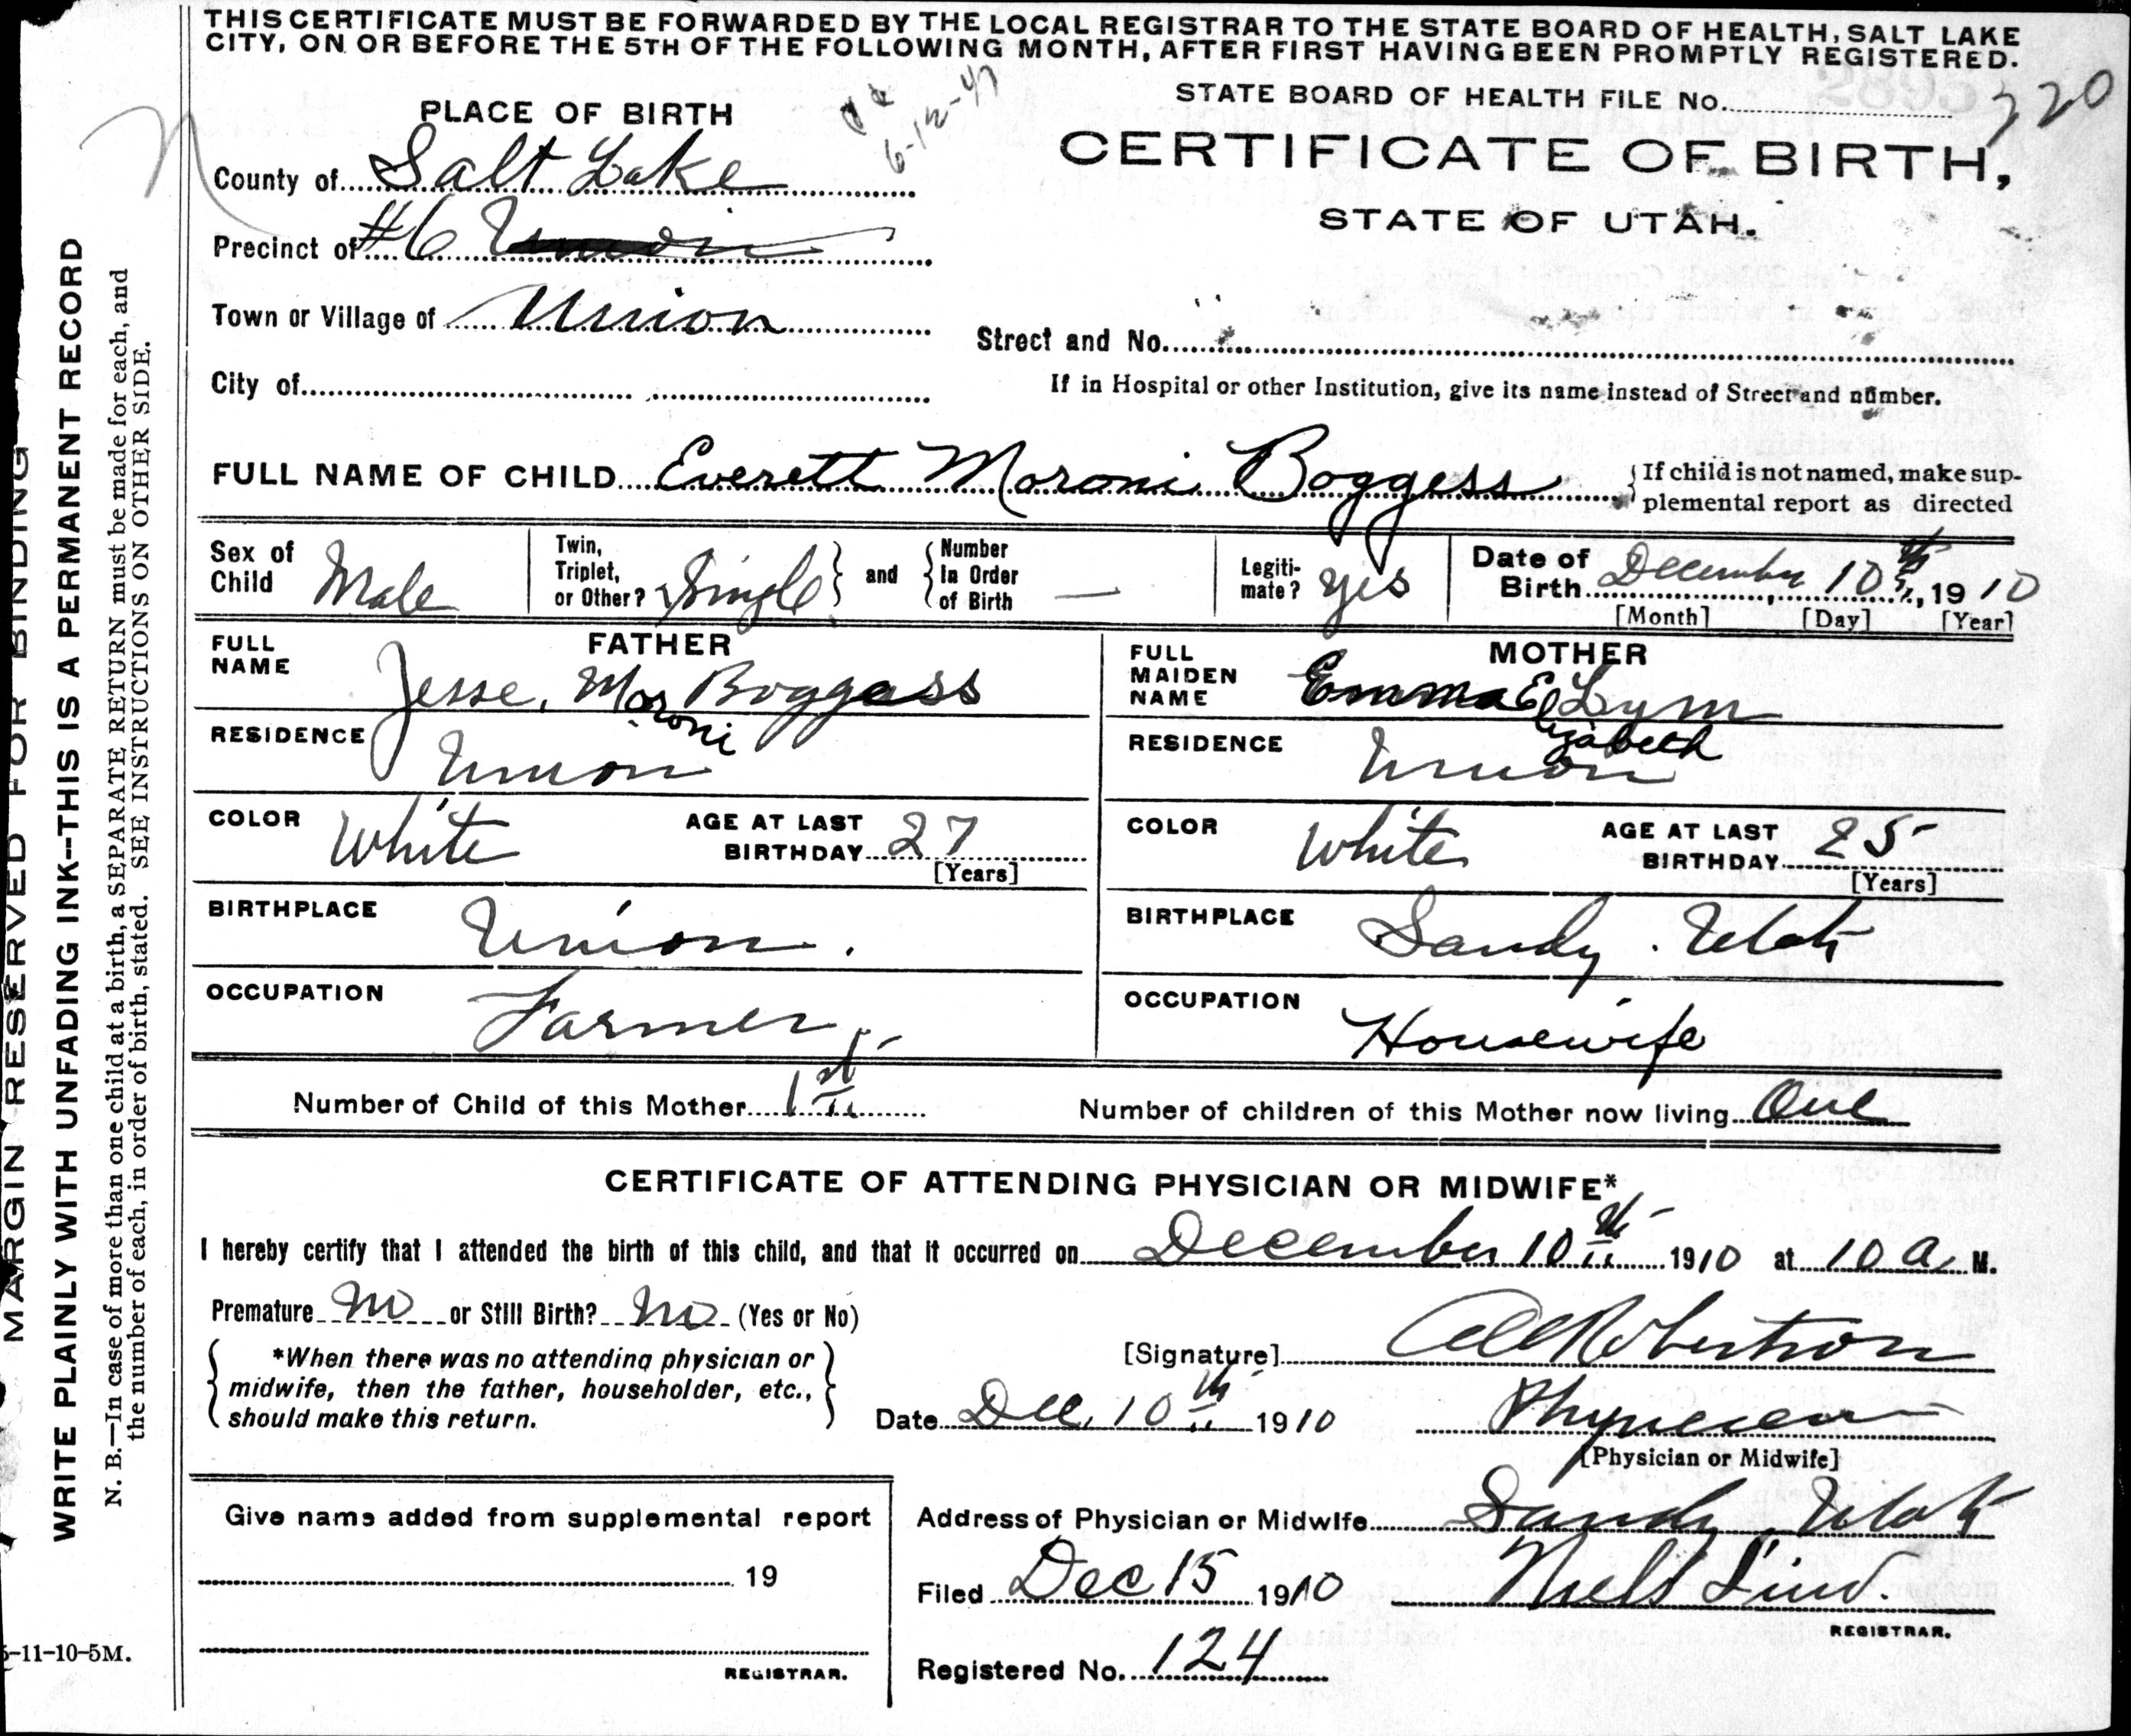 THIS CERTIFICATE MUST BE FORWARDED BY THE LOCAL REGISTRAR TO THE STATE BOARD OF HEALTH, SALT LAKE
CITY, ON OR BEFORE THE 5TH OF THE FOLLOWING MONTH, AFTER FIRST HAVING BEEN PROMPTLY REGISTERED.
6-12-47
STATE BOARD OF HEALTH FILE No. 320
CERTIFICATE OF BIRTH,
STATE OF UTAH.
PLACE OF BIRTH
County of Salt Lake
Precinct of #6 Union
Town or Village of Union
Street and No.
City of
If in Hospital or other Institution, give its name instead of Street and number.
FULL NAME OF CHILD Everett Moroni Boggess
If child is not named, make sup-
plemental report as directed
Sex of Child Male
Twin, Triplet, or Other? Single and Number In Order of Birth —
Legiti-mate? yes
Date of Birth December 10th, 1910
[Month] [Day] [Year]
FATHER
FULL NAME Jesse, Moroni Boggess
RESIDENCE Union
COLOR White
AGE AT LAST BIRTHDAY 27
[Years]
BIRTHPLACE Union.
OCCUPATION Farmer
MOTHER
FULL MAIDEN NAME Emma Elizabeth Lym
RESIDENCE Union
COLOR White
AGE AT LAST BIRTHDAY 25
[Years]
BIRTHPLACE Sandy. Utah
OCCUPATION Housewife
Number of Child of this Mother 1st
Number of children of this Mother now living One
CERTIFICATE OF ATTENDING PHYSICIAN OR MIDWIFE*
I hereby certify that I attended the birth of this child, and that it occurred on December 10th 1910 at 10 a. M.
Premature no or Still Birth? no (Yes or No)
*When there was no attending physician or
midwife, then the father, householder, etc.,
should make this return.
[Signature] Robertson
Date Dec. 10th 1910
Physician
[Physician or Midwife]
Give name added from supplemental report
19
REGISTRAR.
Address of Physician or Midwife Sandy, Utah
Filed Dec 15 1910 Niels Lind.
REGISTRAR.
Registered No. 124
MARGIN RESERVED FOR BINDING
WRITE PLAINLY WITH UNFADING INK--THIS IS A PERMANENT RECORD
N. B.—In case of more than one child at a birth, a SEPARATE RETURN must be made for each, and
the number of each, in order of birth, stated. SEE INSTRUCTIONS ON OTHER SIDE.
-11-10-5M.